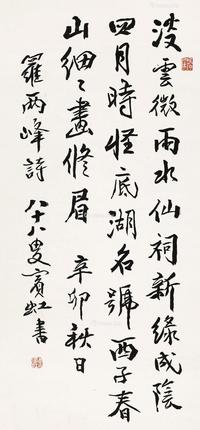 淡雲微雨水仙祠新綠成陰
四月時怪底湖名號西子春
山細〻畫脩眉 辛卯秋日
羅兩峰詩 八十八叟賓虹書